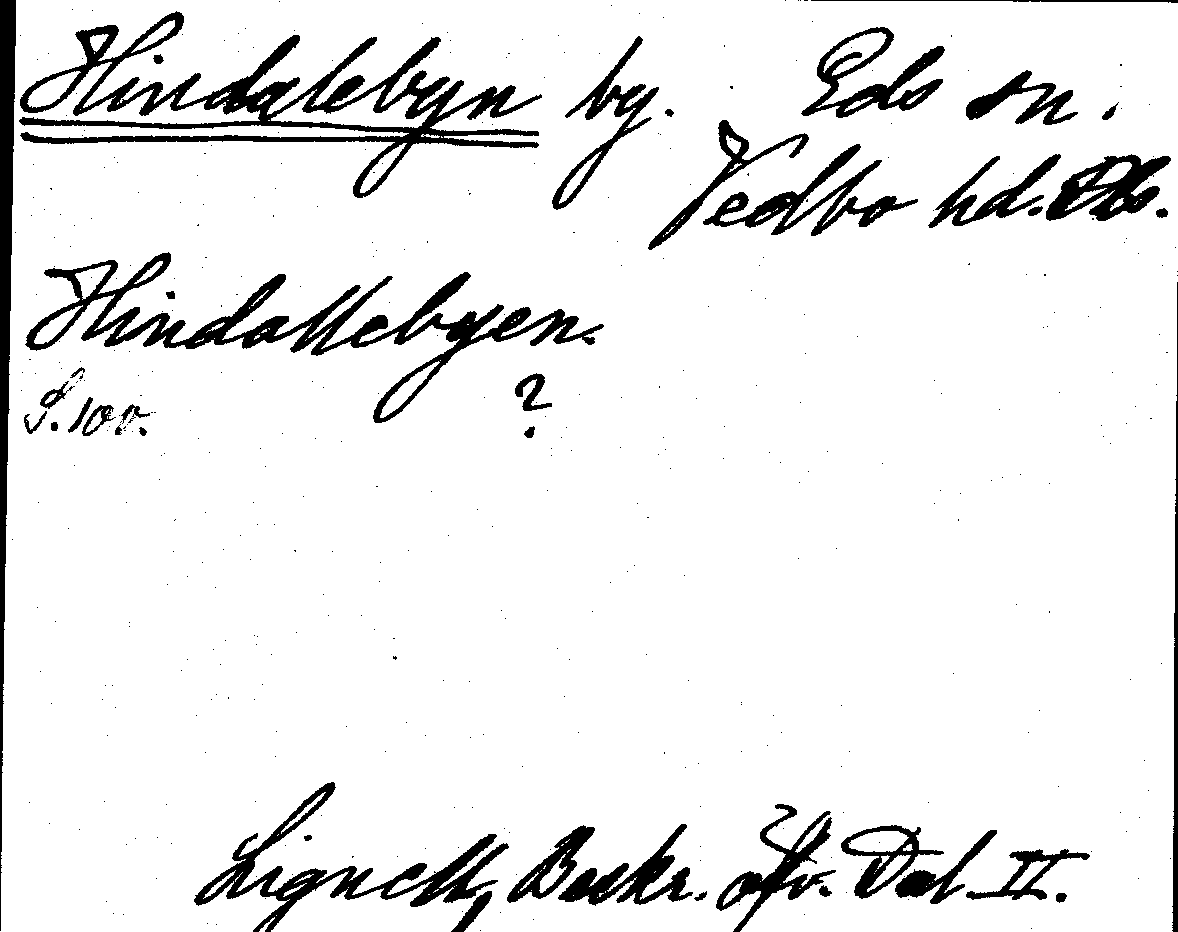 Hindalebyn by. Eds sn.
Vedbo hd. Dls.
Hindallebyen.
S. 100. ?
Lignell, Beskr. öfv. Dal II.